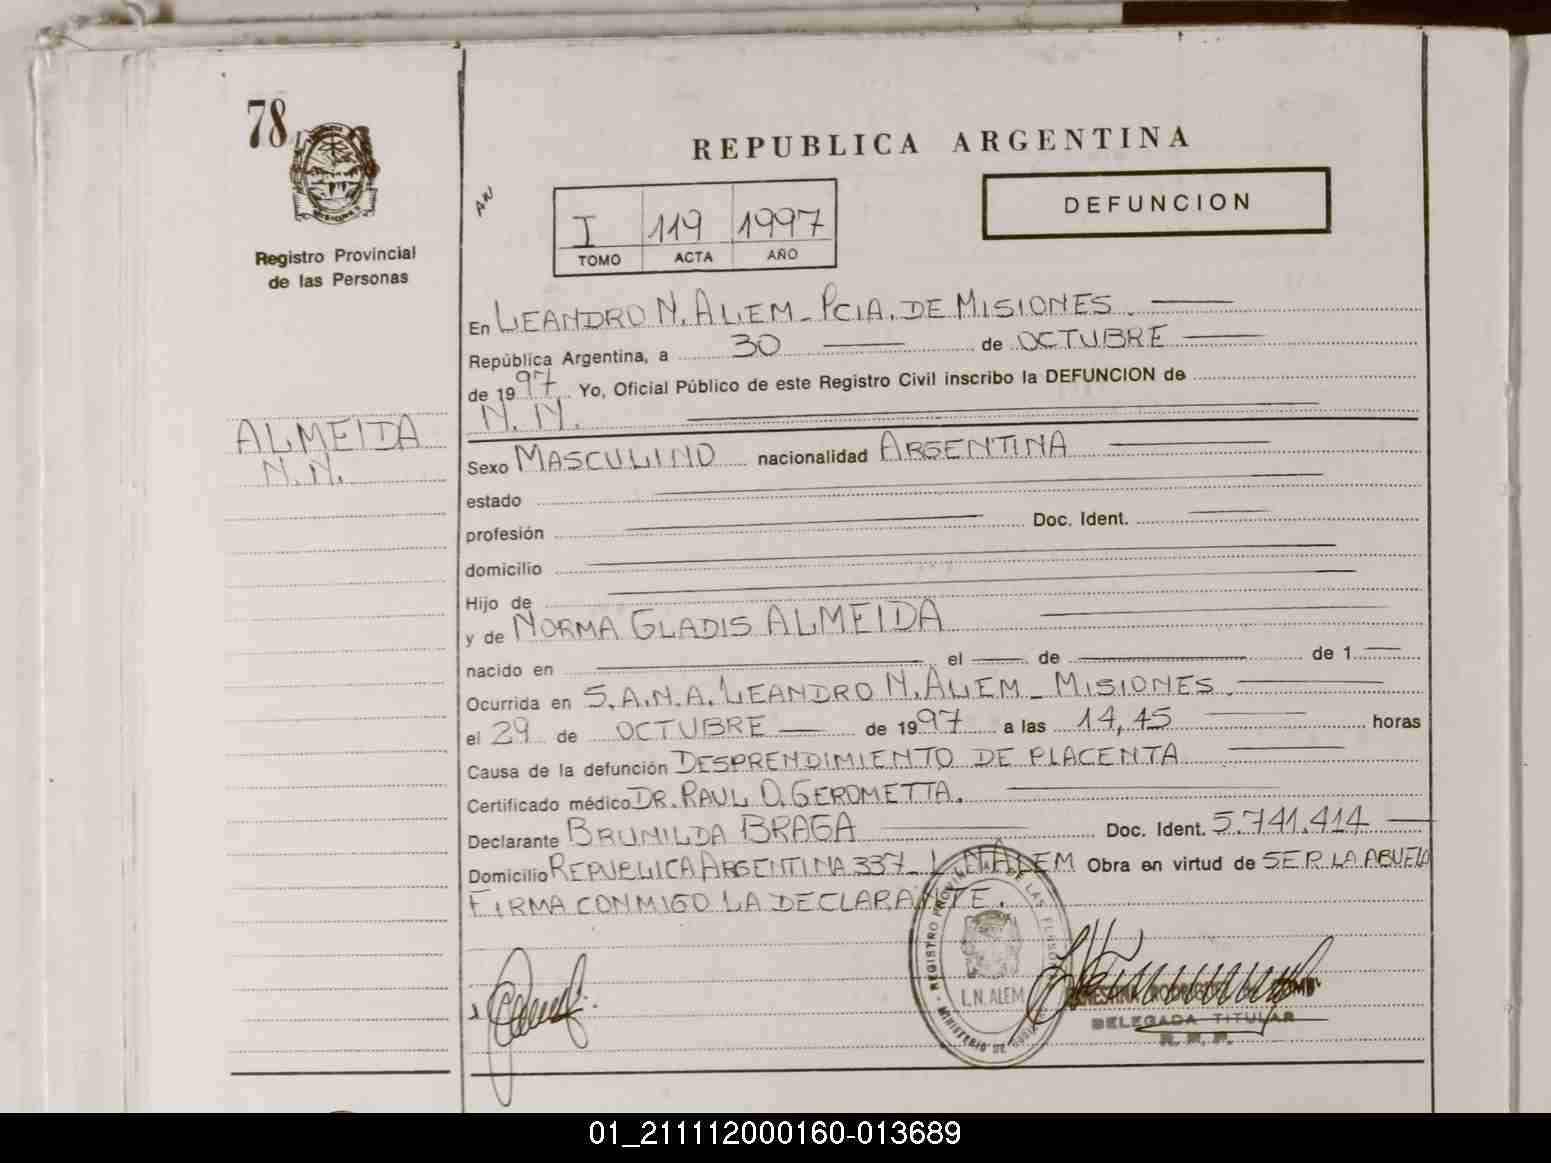 78
MISIONES
Registro Provincial
de las Personas
ALMEIDA
N.N.
REPUBLICA ARGENTINA
I 119 1997
TOMO ACTA AÑO
DEFUNCION
En LEANDRO N. ALEM - PCIA. DE MISIONES.
República Argentina, a 30 de OCTUBRE
de 1997 Yo, Oficial Público de este Registro Civil inscribo la DEFUNCION de
N. N.
Sexo MASCULINO nacionalidad ARGENTINA
estado
profesión Doc. Ident.
domicilio
Hijo de
y de NORMA GLADIS ALMEIDA
nacido en el de de 1
Ocurrida en S.A.N.A. LEANDRO N. ALEM - MISIONES.
el 29 de OCTUBRE de 1997 a las 14,45 horas
Causa de la defunción DESPRENDIMIENTO DE PLACENTA
Certificado médico DR. RAUL O. GEROMETTA.
Declarante BRUNILDA BRAGA Doc. Ident. 5.741.414
Domicilio REPUBLICA ARGENTINA 337 - L.N. ALEM Obra en virtud de SER LA ABUELA
FIRMA CONMIGO LA DECLARANTE.
REGISTRO PROVINCIAL DE LAS PERSONAS
L.N. ALEM
MINISTERIO DE
DELEGADA TITULAR
R. P. P.
01_211112000160-013689